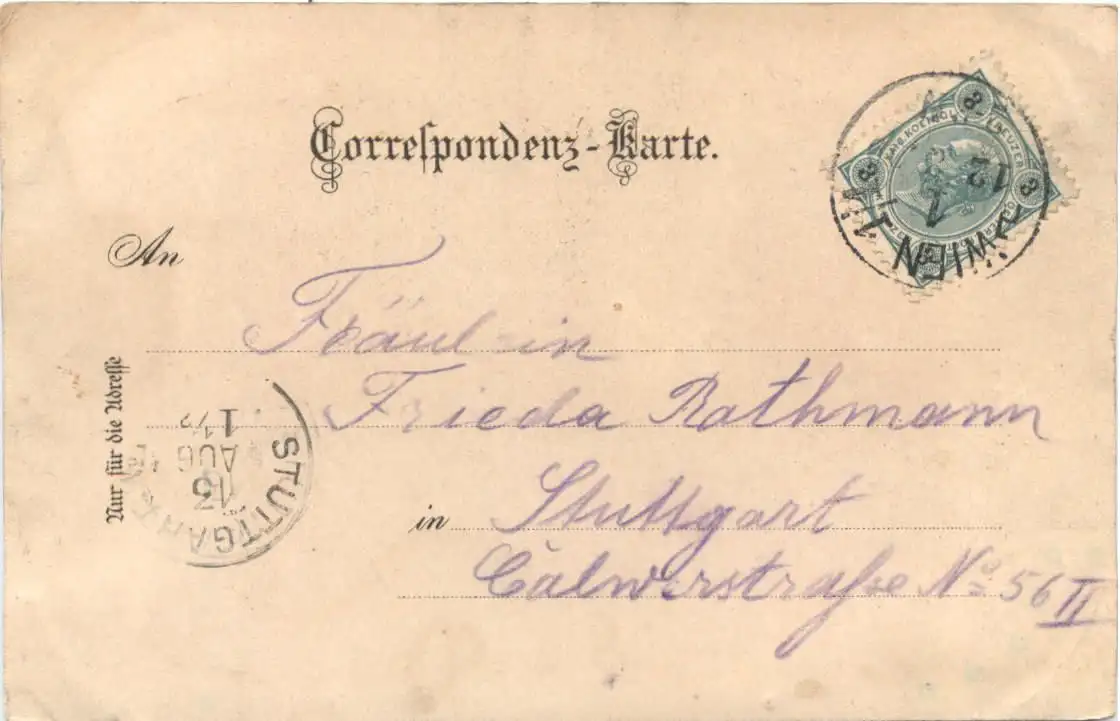 Correspondenz-Karte.
An
Fräulein
Frieda Rathmann
in Stuttgart
Calwerstraße No 56 II
Nur für die Adresse
STUTTGART
13
AUG
1-1/2
WIEN 1/1
12
1
3 KREUZER 3